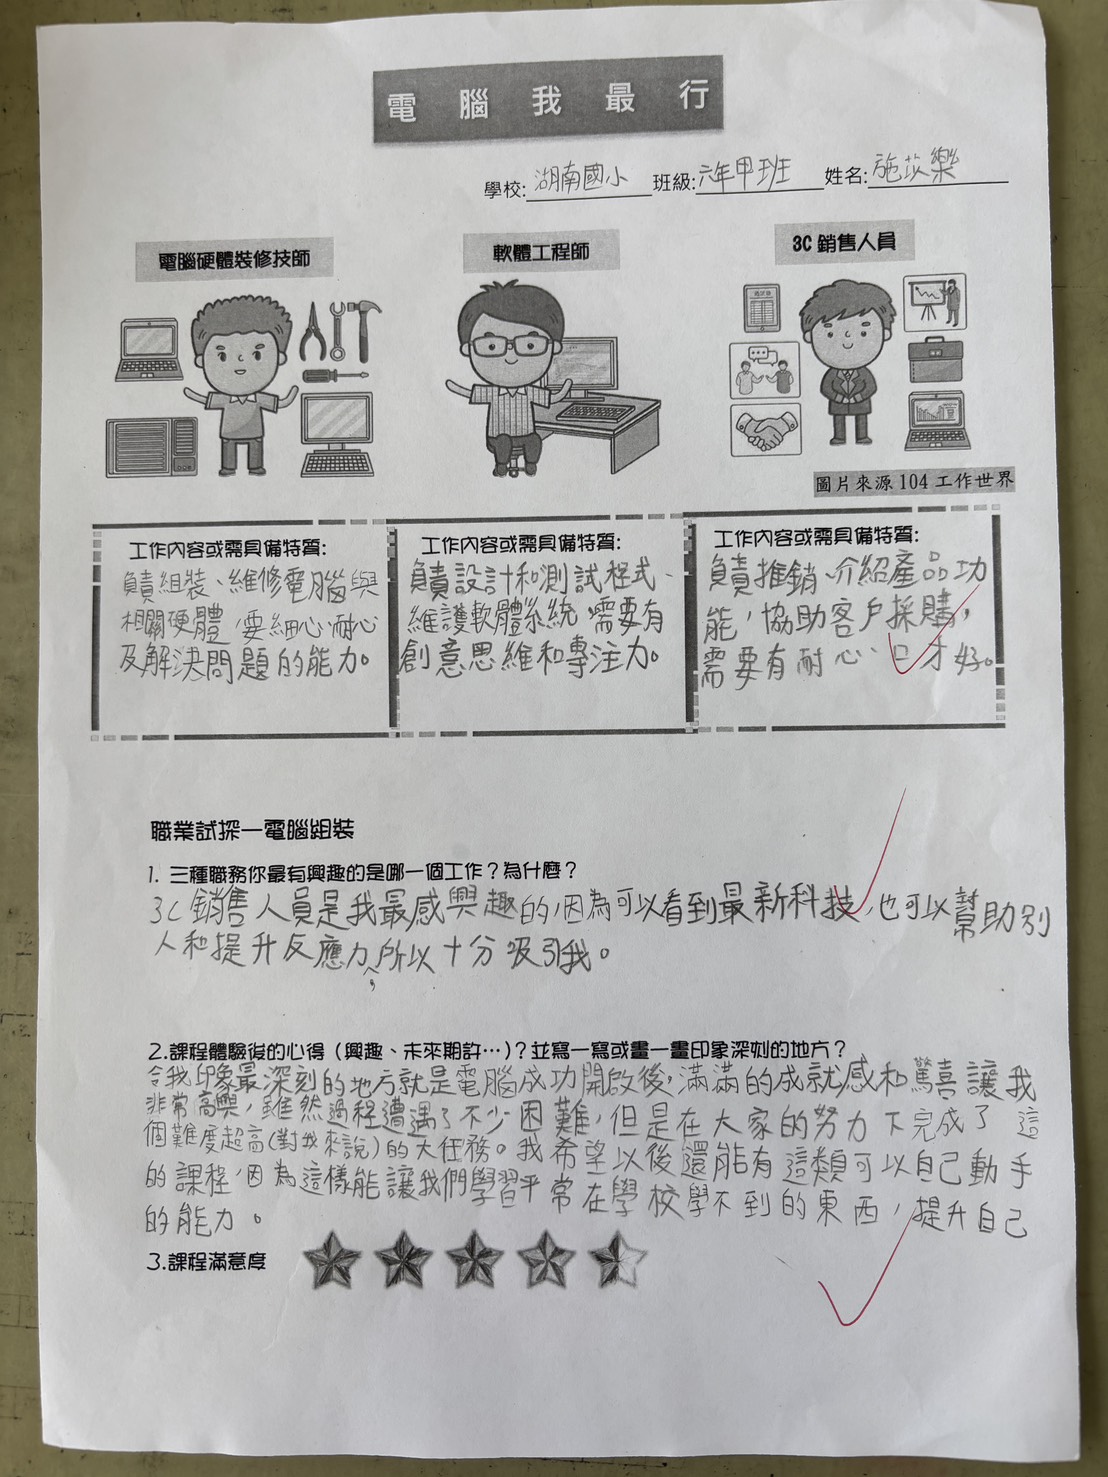 電腦我最行
學校:湖南國小 班級:六年甲班 姓名:施苡樂
電腦硬體裝修技師
軟體工程師
3C 銷售人員
圖片來源 104 工作世界
工作內容或需具備特質:
負責組裝、維修電腦與
相關硬體,要細心、耐心
及解決問題的能力。
工作內容或需具備特質:
負責設計和測試程式、
維護軟體系統,需要有
創意思維和專注力。
工作內容或需具備特質:
負責推銷、介紹產品功
能,協助客戶採購,
需要有耐心、口才好。
職業試探—電腦組裝
1. 三種職務你最有興趣的是哪一個工作?為什麼?
3C銷售人員是我最感興趣的,因為可以看到最新科技,也可以幫助別
人和提升反應力,所以十分吸引我。
2.課程體驗後的心得(興趣、未來期許…)?並寫一寫或畫一畫印象深刻的地方?
令我印象最深刻的地方就是電腦成功開啟後,滿滿的成就感和驚喜讓我
非常高興,雖然過程遭遇了不少困難,但是在大家的努力下完成了這
個難度超高(對我來說)的大任務。我希望以後還能有這類可以自己動手
的課程,因為這樣能讓我們學習平常在學校學不到的東西,提升自己
的能力。
3.課程滿意度